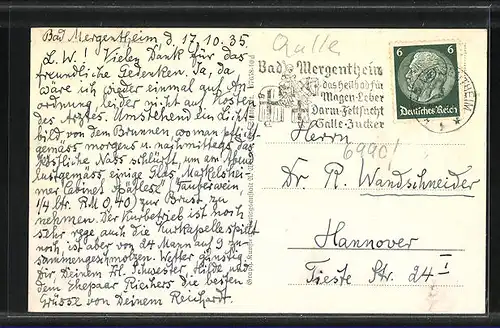 Bad Mergentheim d. 17.10.35
L. W.! Vielen Dank für das
freundliche Gedenken. Ja, da
wäre ich wieder einmal auf An-
ordnung, leider nicht auf Kosten
des Arztes. Umstehend ein Licht-
bild von dem Brunnen, woman pflicht-
gemäss morgens u. nachmittags das
köstliche Nass schlürft, um am Abend
lustgemäss einige Glas Markelshei-
mer (Tauberwein
1/4 ltr. RM 0,40) zur Brust zu
nehmen. Der Kurbetrieb ist noch
sehr rege, auch die Kurkapelle spielt
noch, ist aber von 24 Mann auf 9 zu-
sammengeschmolzen. Wetter günstig
für Deinem Frl. Schwester Hilde und
dem Ehepaar Reichers die besten
Grüsse von Deinem Reichardt.
Galle
Bad Mergentheim
das Heilbad für
Magen-Leber
Darm-Fettsucht
Galle-Zucker
6 6
Deutsches Reich
Herrn
6990
Dr. R. Wandschneider
Hannover
Tieste Str. 24 I